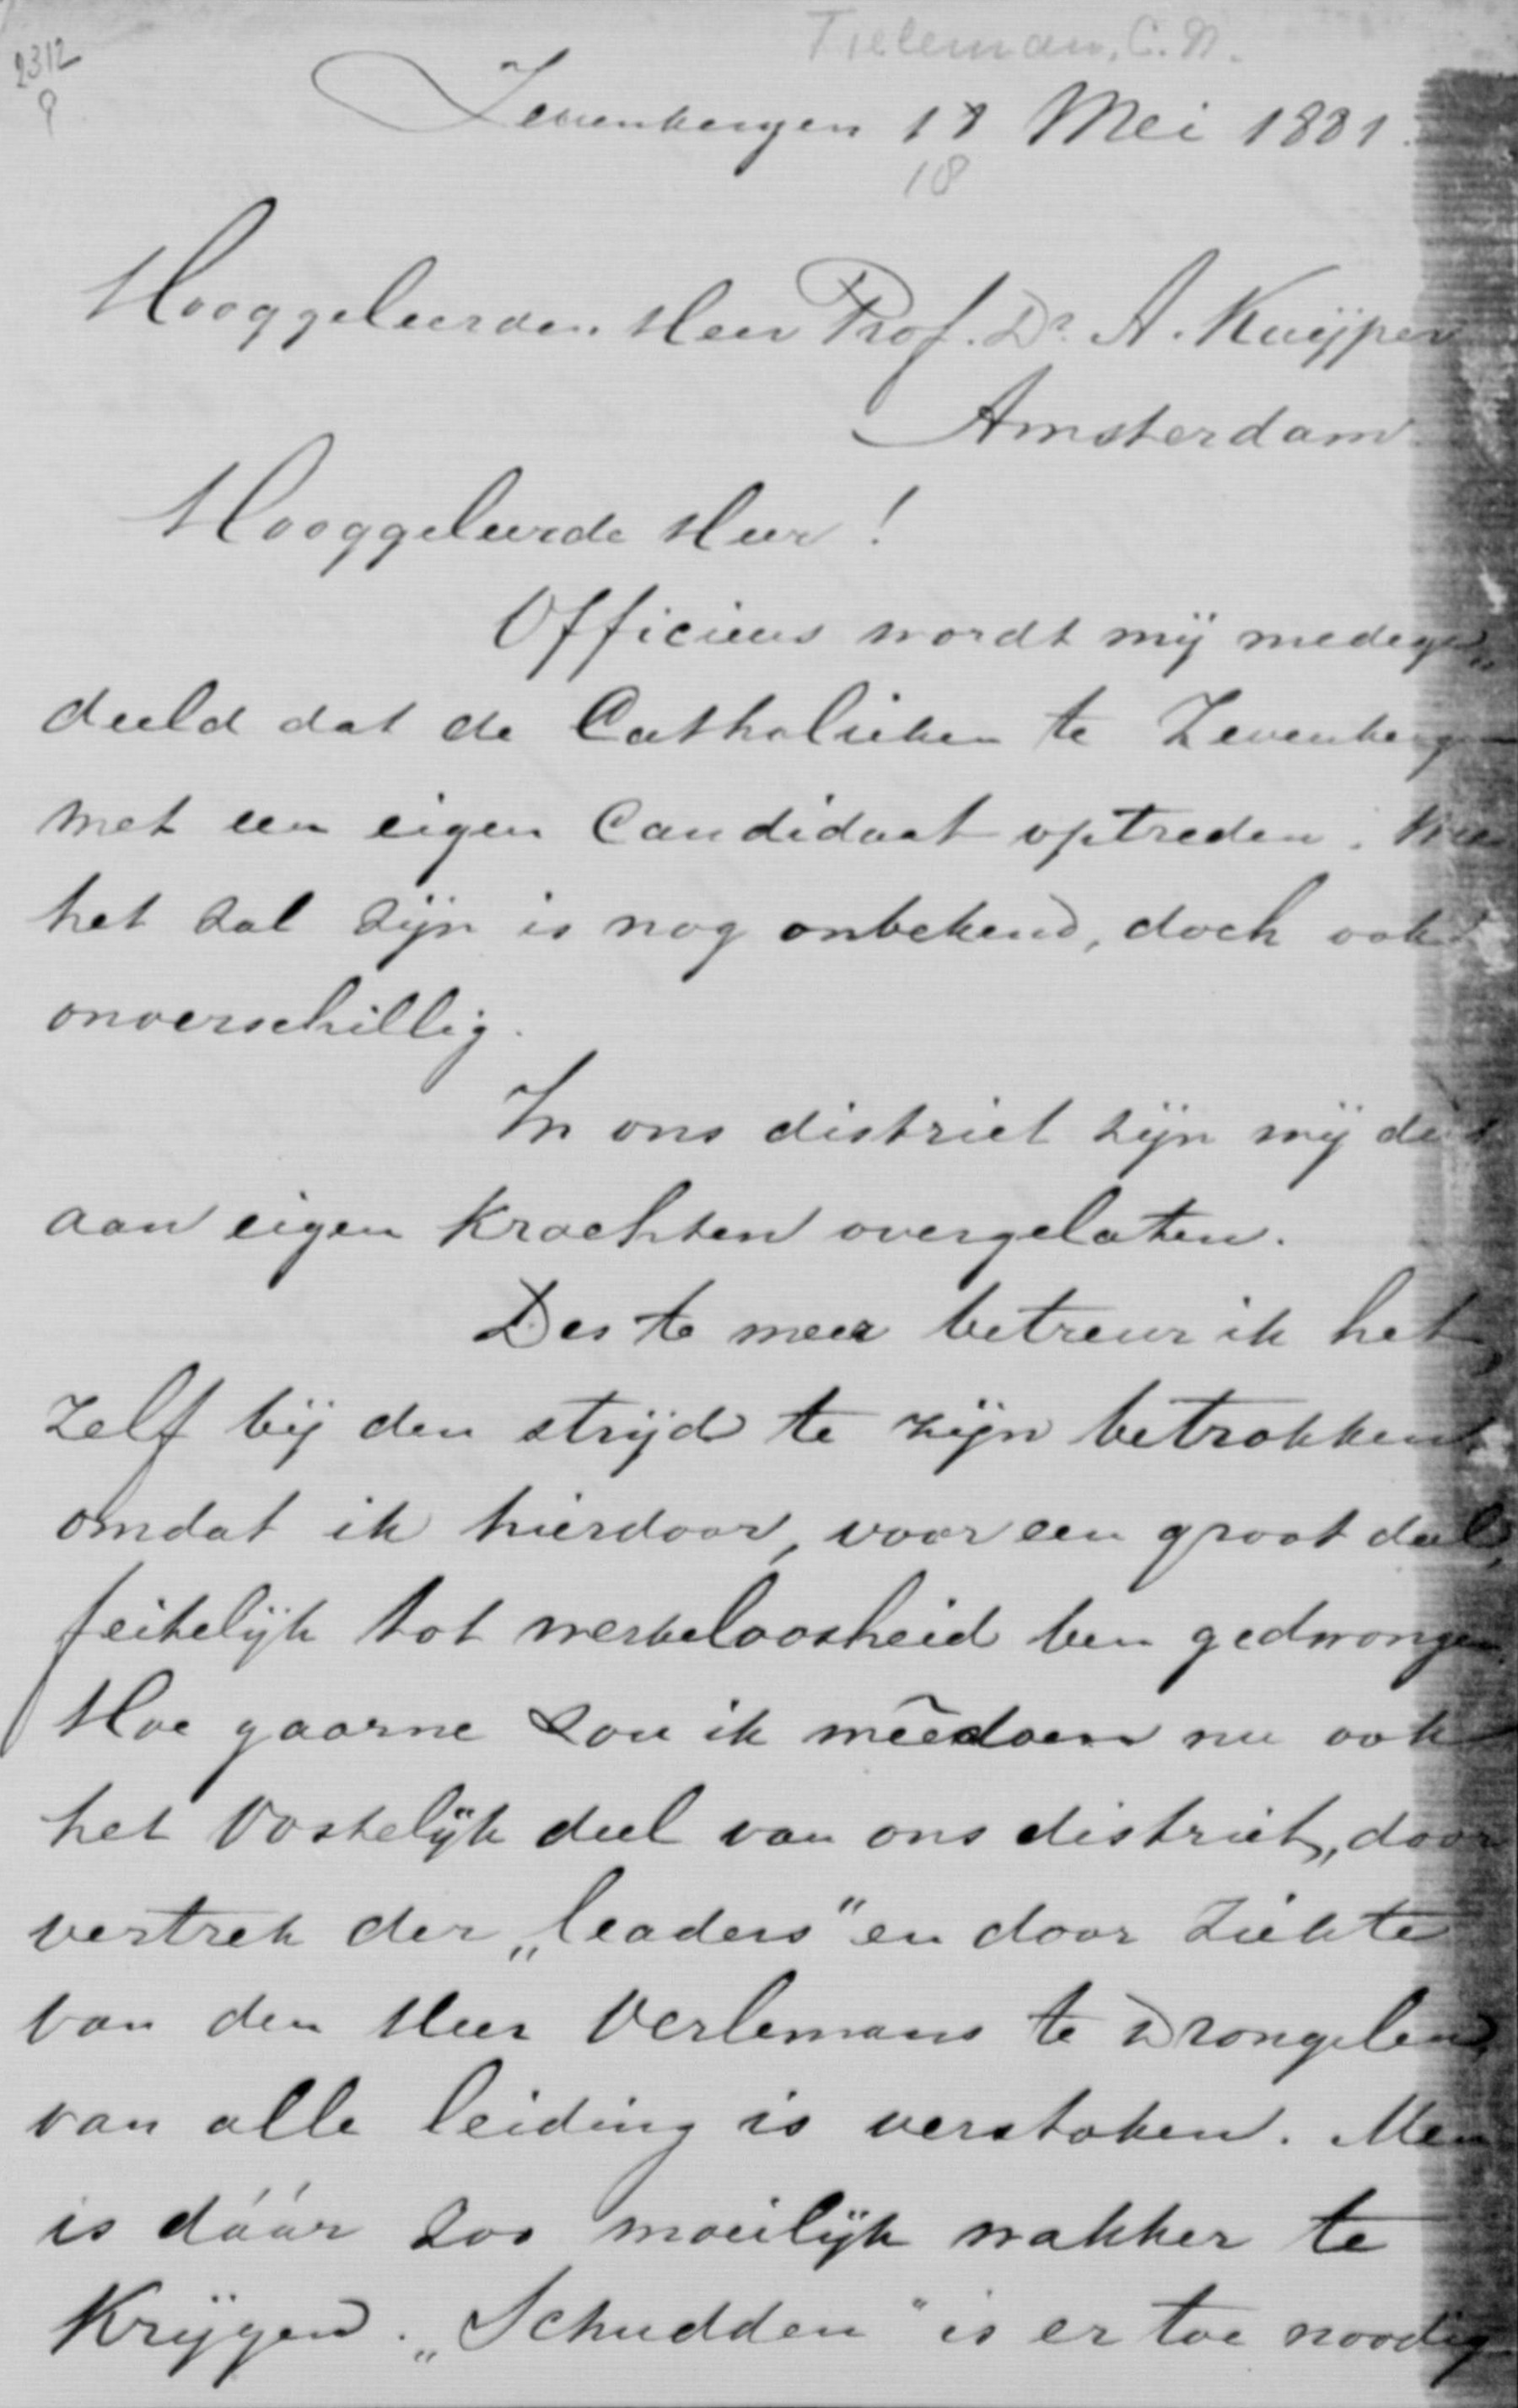 Tieleman, C.N.
2312
Zevenbergen 18 Mei 1881.
18
Hooggeleerden Heer Prof. Dr. A. Kuÿper
Amsterdam
Hooggeleerde Heer!
Officieus wordt mÿ medege„
deeld dat de Catholieken te Zevenbergen
met een eigen Candidaat optreden. Wie
het zal zÿn is nog onbekend, doch ook
onverschillig.
In ons district zÿn wÿ dus
aan eigen krachten overgelaten.
Des te meer betreur ik het,
zelf bÿ den strÿd te zÿn betrokken
omdat ik hierdoor, voor een groot deel,
feitelÿk tot werkeloosheid ben gedwongen.
Hoe gaarne zou ik mêedoen nu ook
het Oostelÿk deel van ons district, door
vertrek der „leaders" en door ziekte
van den Heer Verlemans te Drongelen,
van alle leiding is verstoken. Men
is dáár zoo moeilÿk wakker te
krÿgen. „Schudden" is er toe noodig